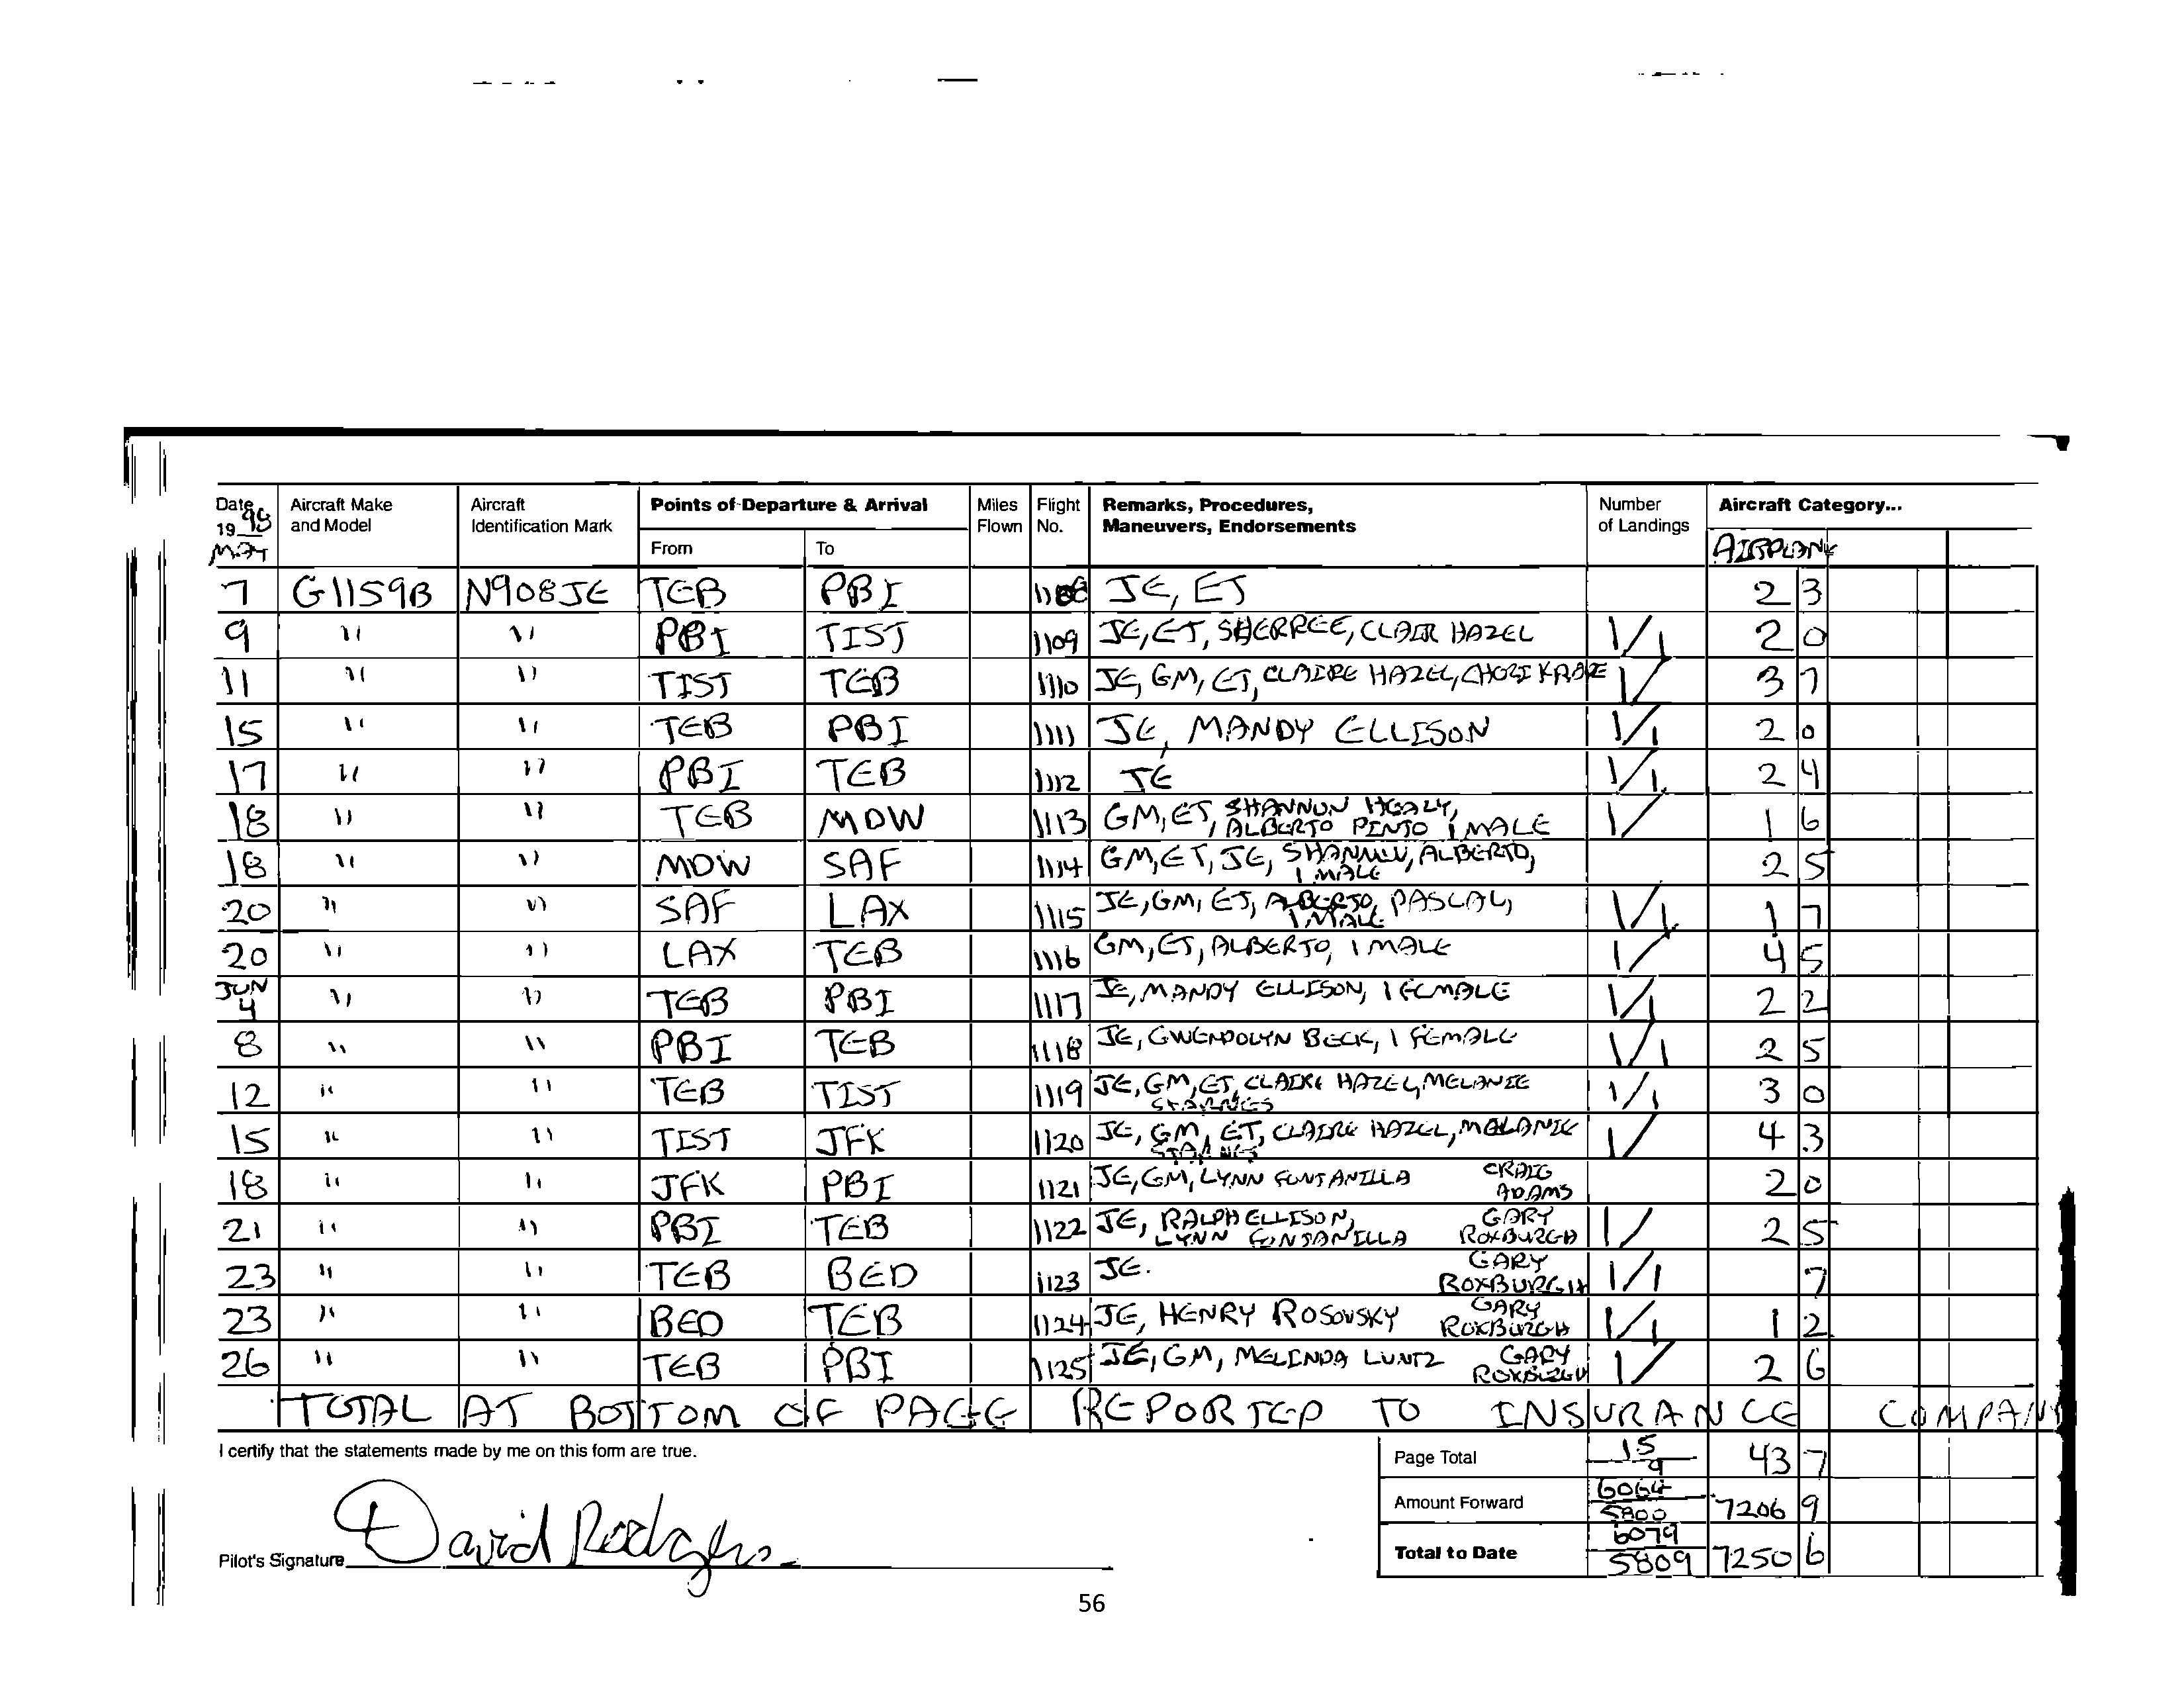 Date Aircraft Make Aircraft Points of Departure & Arrival Miles Flight Remarks, Procedures, Number Aircraft Category...
19 98 and Model Identification Mark Flown No. Maneuvers, Endorsements of Landings
MAY From To AIRPLANE
7 G1159B N908JE TEB PBI JE, ET 2 3
9 " " PBI TIST 1109 JE, ET, SHERREE, CLAIR HAZEL 1/1 2 0
11 " " TIST TEB 1110 JE, GM, ET, CLAIRE HAZEL, 1/ 3 7
15 " " TEB PBI 1111 JE, MANDY ELLISON 1/1 2 0
17 " " PBI TEB 1112 JE 1/1 2 4
18 " " TEB MDW 1113 GM, ET, SHANNON HEALY, 1/ 1 6
ALBERTO PINTO 1 MALE
18 " " MDW SAF 1114 GM, ET, JE, SHANNON, ALBERTO, 2 5
1 MALE
20 " " SAF LAX 1115 JE, GM, ET, ALBERTO, PASCAL, 1/1 1 7
1 MALE
20 " " LAX TEB 1116 GM, ET, ALBERTO, 1 MALE 1/ 4 5
JUN
4 " " TEB PBI 1117 JE, MANDY ELLISON, 1 FEMALE 1/1 2 2
8 " " PBI TEB 1118 JE, GWENDOLYN BECK, 1 FEMALE 1/1 2 5
12 " " TEB TIST 1119 JE, GM, ET, CLAIRE HAZEL, MELANIE 1/1 3 0
STARNES
15 " " TIST JFK 1120 JE, GM, ET, CLAIRE HAZEL, MELANIE 1/ 4 3
STARNES
18 " " JFK PBI 1121 JE, GM, LYNN FONTANILLA CRAIG 2 0
ADAMS
21 " " PBI TEB 1122 JE, RALPH ELLISON, GARY 1/ 2 5
LYNN FONTANILLA ROXBURGH
23 " " TEB BED 1123 JE. GARY 1/1 7
ROXBURGH
23 " " BED TEB 1124 JE, HENRY ROSOVSKY GARY 1/1 1 2
ROXBURGH
26 " " TEB PBI 1125 JE, GM, MELINDA LUNTZ GARY 1/ 2 6
ROXBURGH
TOTAL AT BOTTOM OF PAGE REPORTED TO INSURANCE COMPANY
I certify that the statements made by me on this form are true.
Page Total 15 43 7
9
Amount Forward 6064 7206 9
5800
Total to Date 6079 7250 6
5809
Pilot's Signature David Rodgers
56